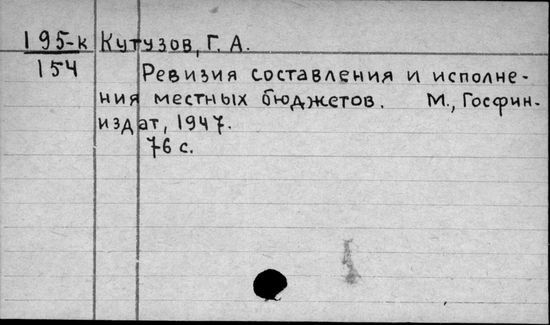 195-к Кутузов, Г. А.
154
Ревизия составления и исполне-
ния местных бюджетов. М., Госфин-
издат, 1947.
76 с.